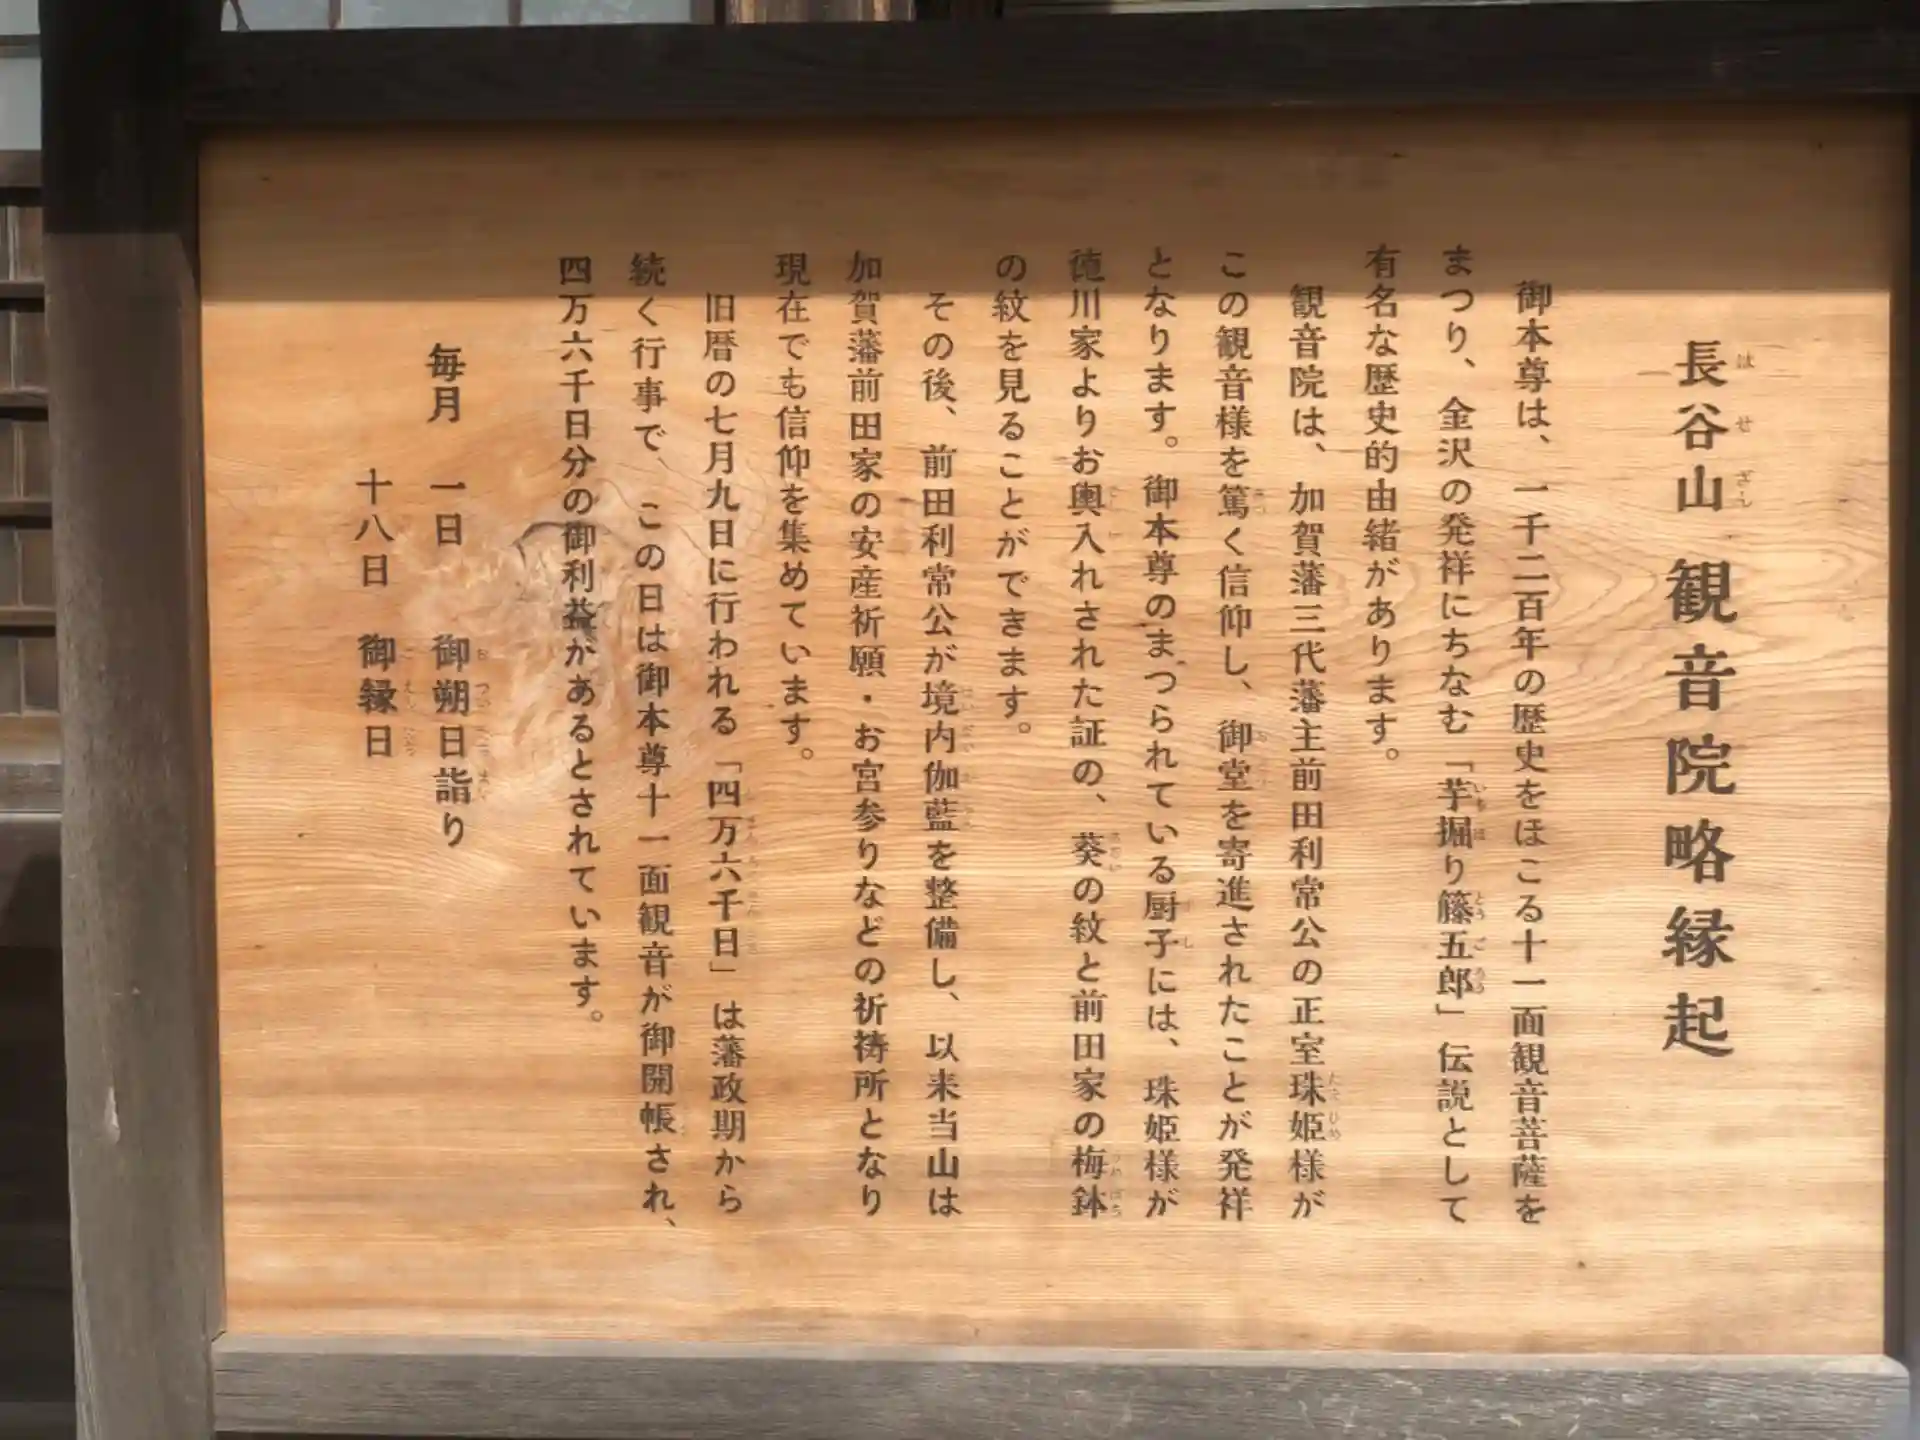 長谷山 観音院略縁起
御本尊は、一千二百年の歴史をほこる十一面観音菩薩を
まつり、金沢の発祥にちなむ「芋掘り籐五郎」伝説として
有名な歴史的由緒があります。
観音院は、加賀藩三代藩主前田利常公の正室珠姫様が
この観音様を篤く信仰し、御堂を寄進されたことが発祥
となります。御本尊のまつられている厨子には、珠姫様が
徳川家よりお輿入れされた証の、葵の紋と前田家の梅鉢
の紋を見ることができます。
その後、前田利常公が境内伽藍を整備し、以来当山は
加賀藩前田家の安産祈願・お宮参りなどの祈祷所となり
現在でも信仰を集めています。
旧暦の七月九日に行われる「四万六千日」は藩政期から
続く行事で、この日は御本尊十一面観音が御開帳され、
四万六千日分の御利益があるとされています。
毎月 一日 御朔日詣り
十八日 御縁日